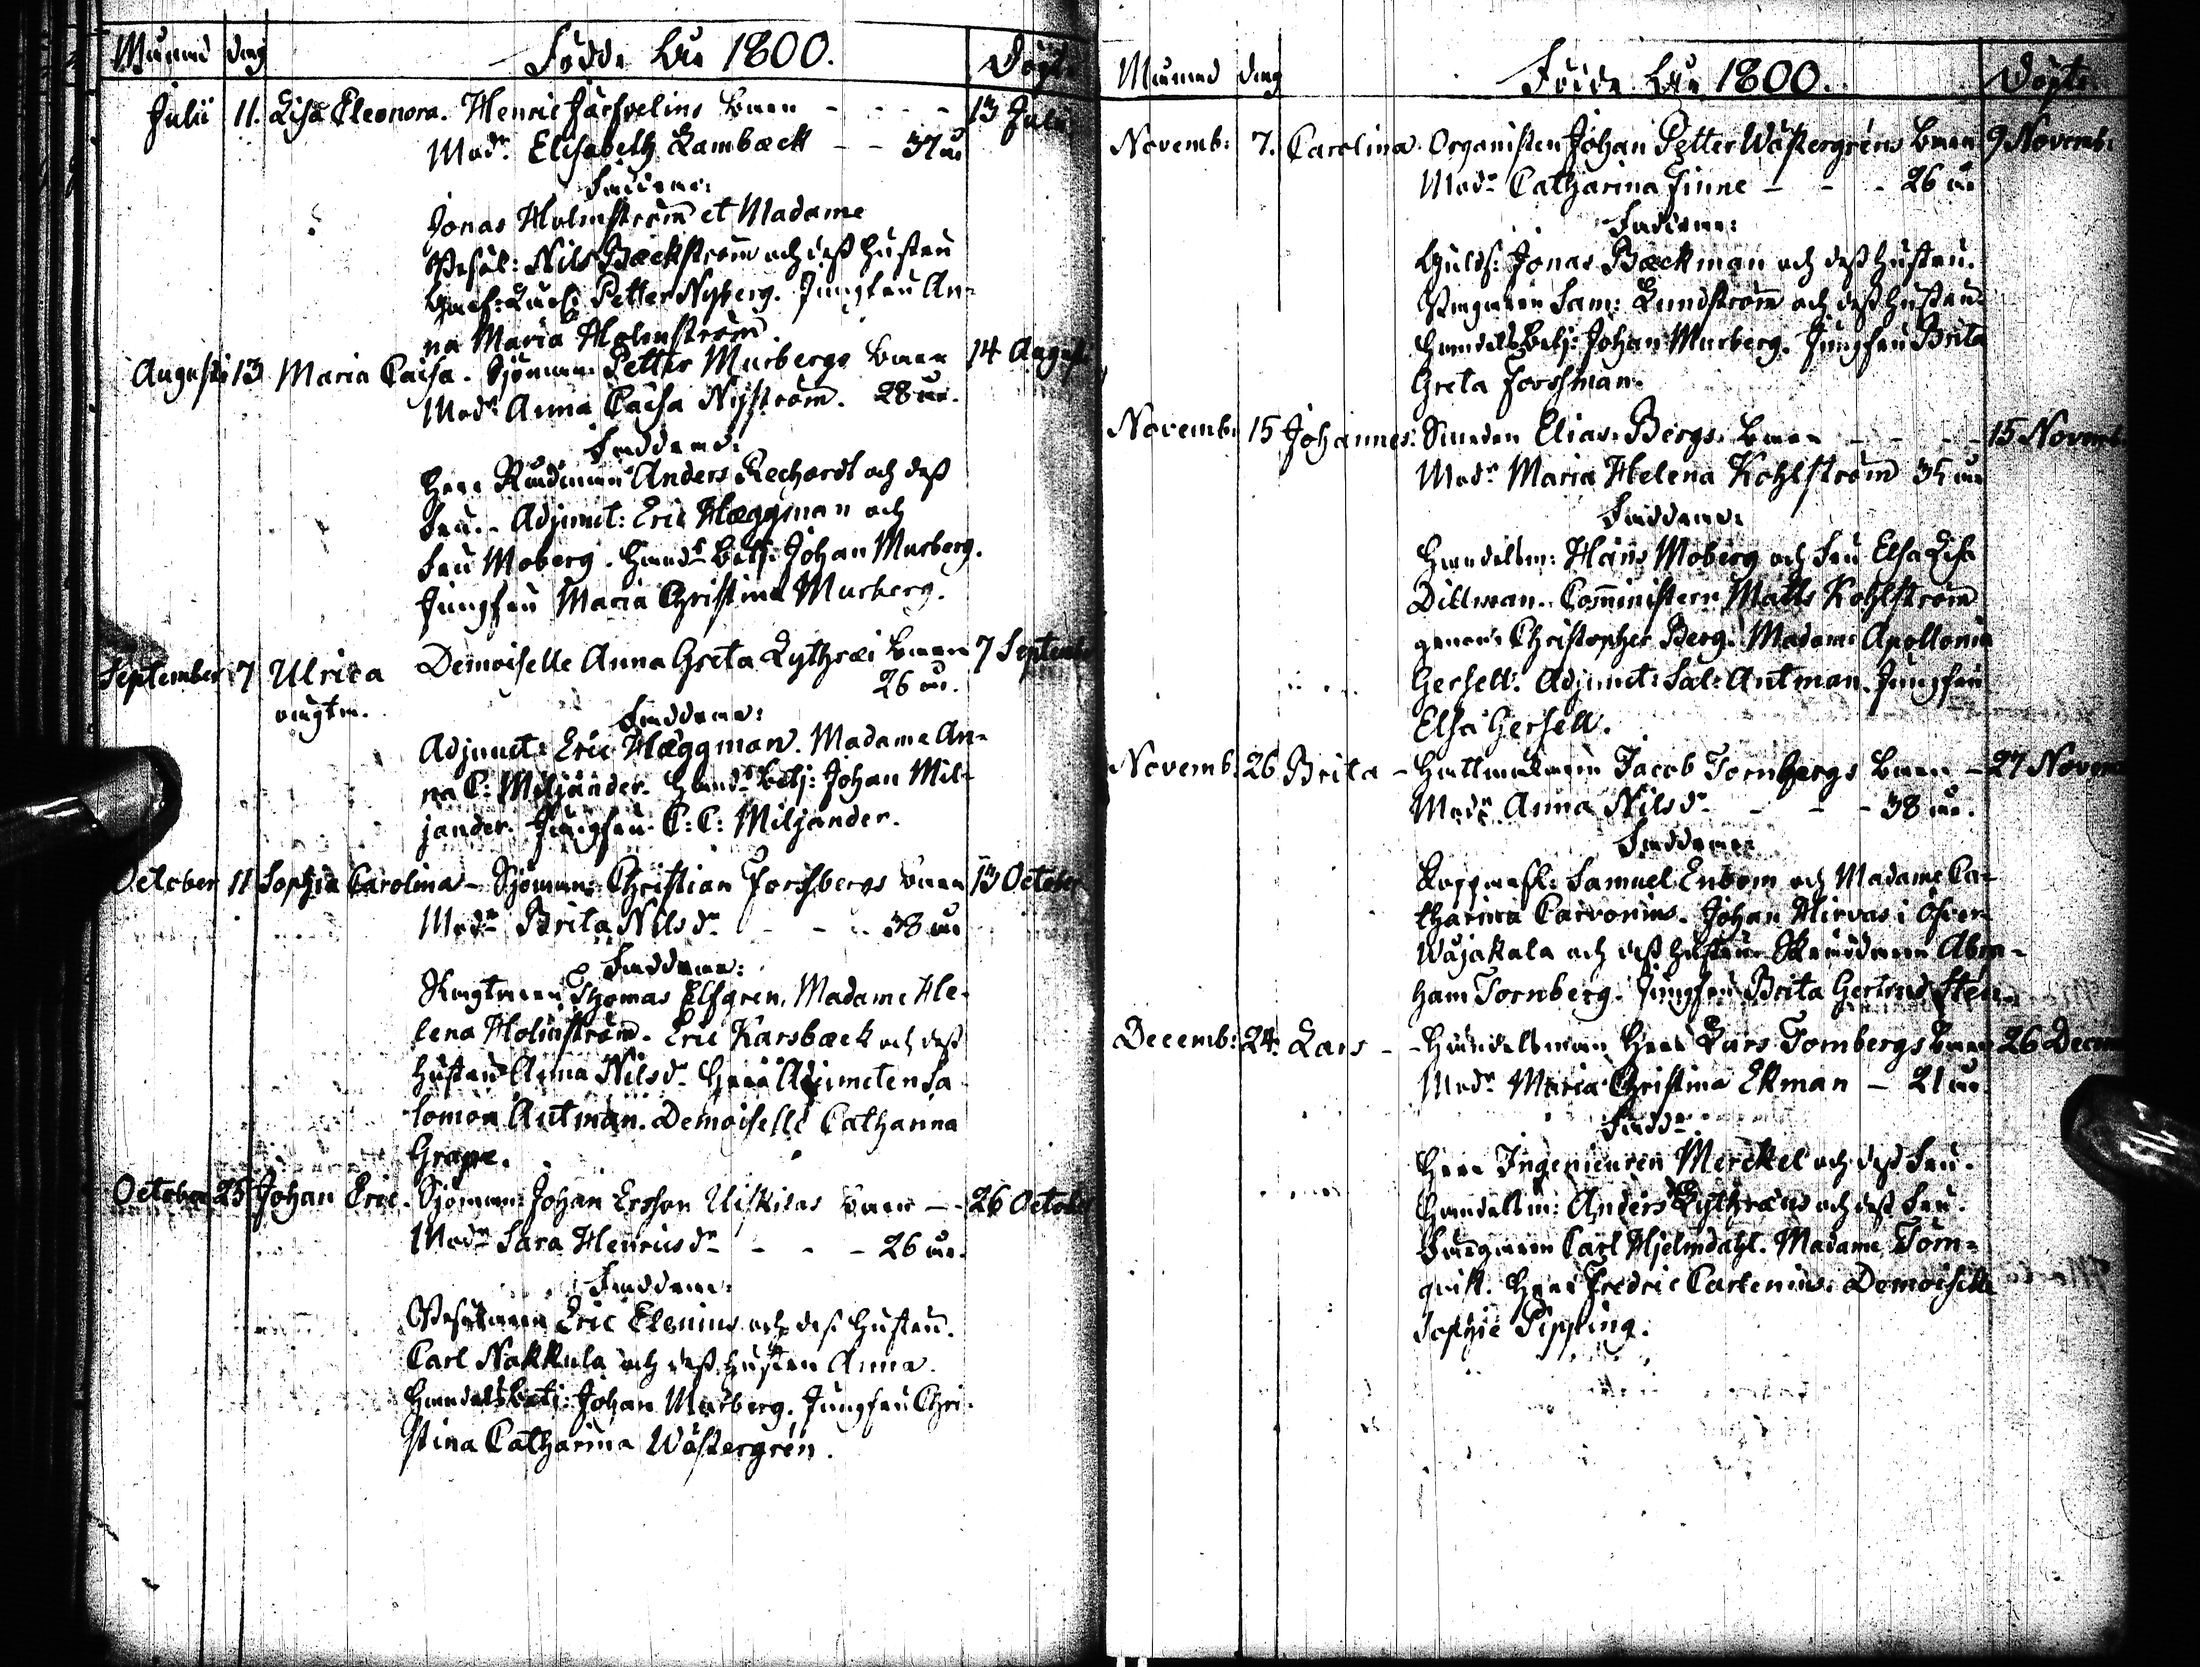 Månad dag Födde År 1800. Döpte
Julii 11. Lisa Eleonora. Henric Järfvelins Barn - - - - 13 Julii
Modr. Elisabeth Lambæck - - 37 år
Faddrar:
Jonas Holmström et Madame
Nils Bæckström och dess hustru
Petter Nyberg. Jungfru An-
na Maria Holmström.
Augusti 13 Maria Caisa. Sjöman: Petter Murbergs Barn 14 August
Modr: Anna Caisa Nyström. 28 år.
Faddrar:
Herr Rådman Anders Rechardt och dess
Fru. Adjunct: Eric Hæggman och
Fru Moberg. Handl: Betj: Johan Murberg.
Jungfru Maria Christina Murberg.
September 7 Ulrica Demoiselle Anna Greta Lythræi Barn 7 Septemb
oägta. 26 år.
Faddrar:
Adjunct: Eric Hæggman. Madame An-
na C: Miljander. Handl: Betj: Johan Mil-
jander. Jungfru C: C: Miljander.
October 11 Sophia Carolina - Sjöman: Christian Forssbergs Barn 13 October
Modr Brita Nilsdr - - - 38 år
Faddrar:
Thomas Elfgren, Madame He-
lena Holmström. Eric Karsbæck och dess
hustru Anna Nilsdr. Herr Adjuncten Sa-
lomon Antman. Demoiselle Catharina
Grape.
October 25 Johan Eric. Sjöman: Johan Ersson Barn - - 26 October
Modr Sara Henricsdr - - - 26 år.
Faddrar:
Eric Elenius och dess hustru.
Carl Nakkula och dess hustru Anna.
Handelsbetj: Johan Murberg. Jungfru Chri-
stina Catharina Wästergrén.
Månad dag Födde År 1800. Döpte
Novemb: 7. Carolina. Organisten Johan Petter Wästergréns Barn 9 Novemb:
Modr Catharina Finne - - - 26 år
Faddrar:
Gulds: Jonas Bæckman och dess hustru.
Sam: Lundström och dess hustru.
Handelsbetj: Johan Murberg. Jungfru Brita
Greta Forssman.
Novemb: 15 Johannes: Smeden Elias Bergs Barn - - - - 15 Novemb
Modr Maria Helena Kohlström 35 år
Faddrar:
Handelsm: Hans Moberg och Fru Elsa Lisa
Dillman. Comministern Matts Kohlström
Christopher Berg. Madame Apollonia
Gersell. Adjunct: Sal: Antman. Jungfru
Elsa Gersell.
Novemb: 26 Brita - Hattmakaren Jacob Tornbergs Barn - 27 Novem
Modr Anna Nilsdr - - - 38 år.
Faddrar
Kopparsl: Samuel Enbom och Madame Ca-
tharina Carvonius. Johan Hirvas i Öfver-
Wojakala och dess hustru. Skräddaren Abra-
ham Tornberg. Jungfru Brita Gertrud Sten.
Decemb: 24. Lars - - Handelsman Herr Lars Tornbergs Barn 26 Decem
Modr Maria Christina Ekman - 21 år
Faddr
Herr Ingenieuren Merckel och dess Fru.
Handelsm: Anders Lythræus och dess Fru.
Carl Hjelmdahl. Madame Törn-
quist. Herr Fredric Carlenius. Demoiselle
Sophie Pipping.